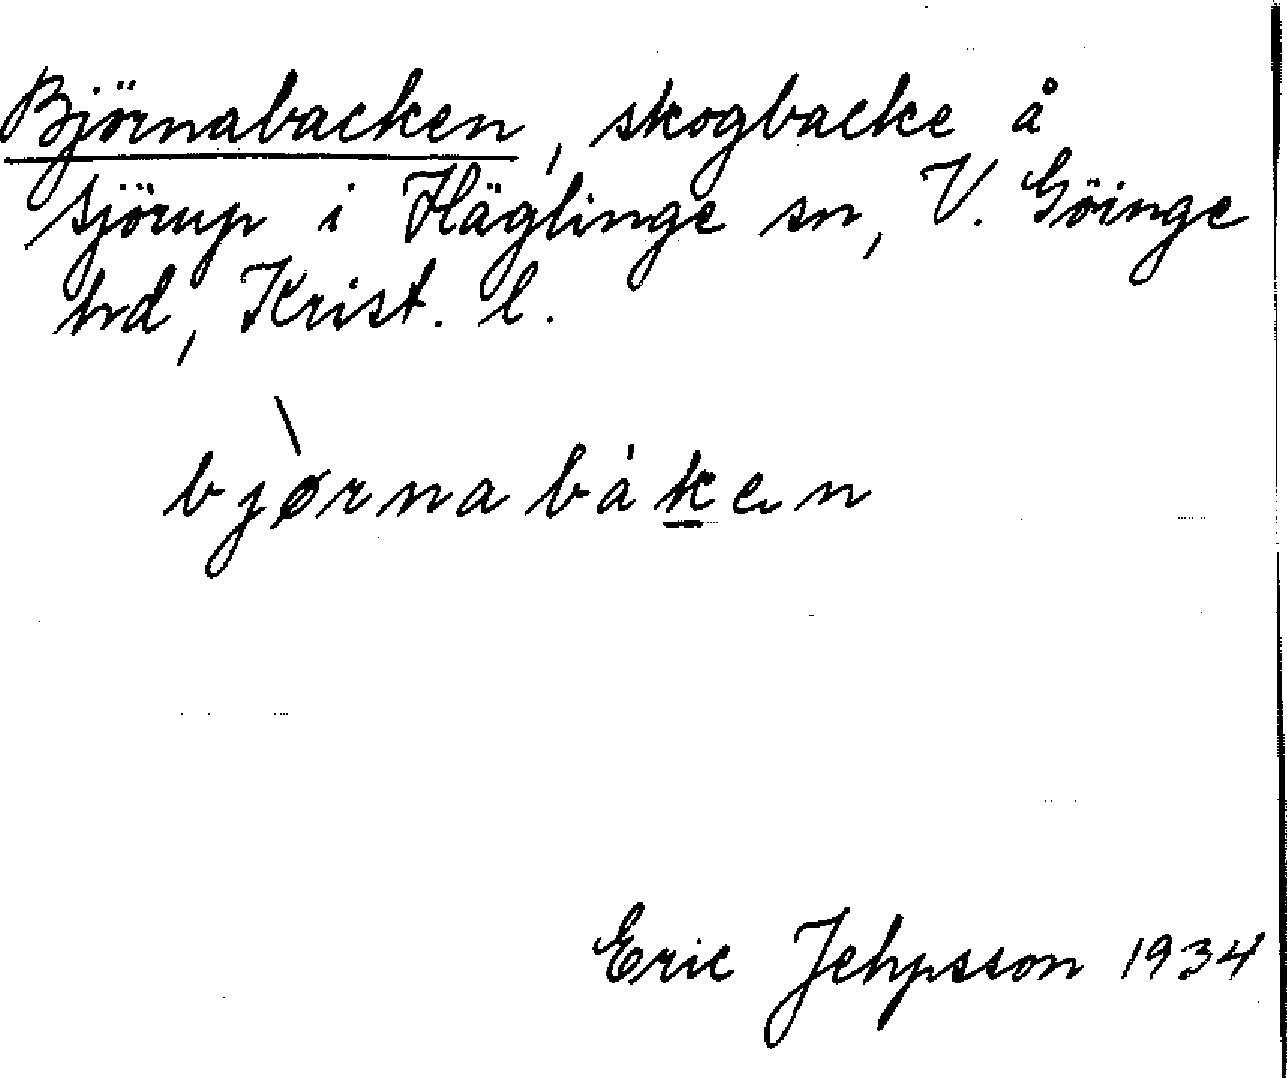 Björnabacken, skogbacke å
Sjörup i Häglinge sn, V. Göinge
hrd, Krist. l.
bjø̀rnabȧken
Eric Jehpsson 1934